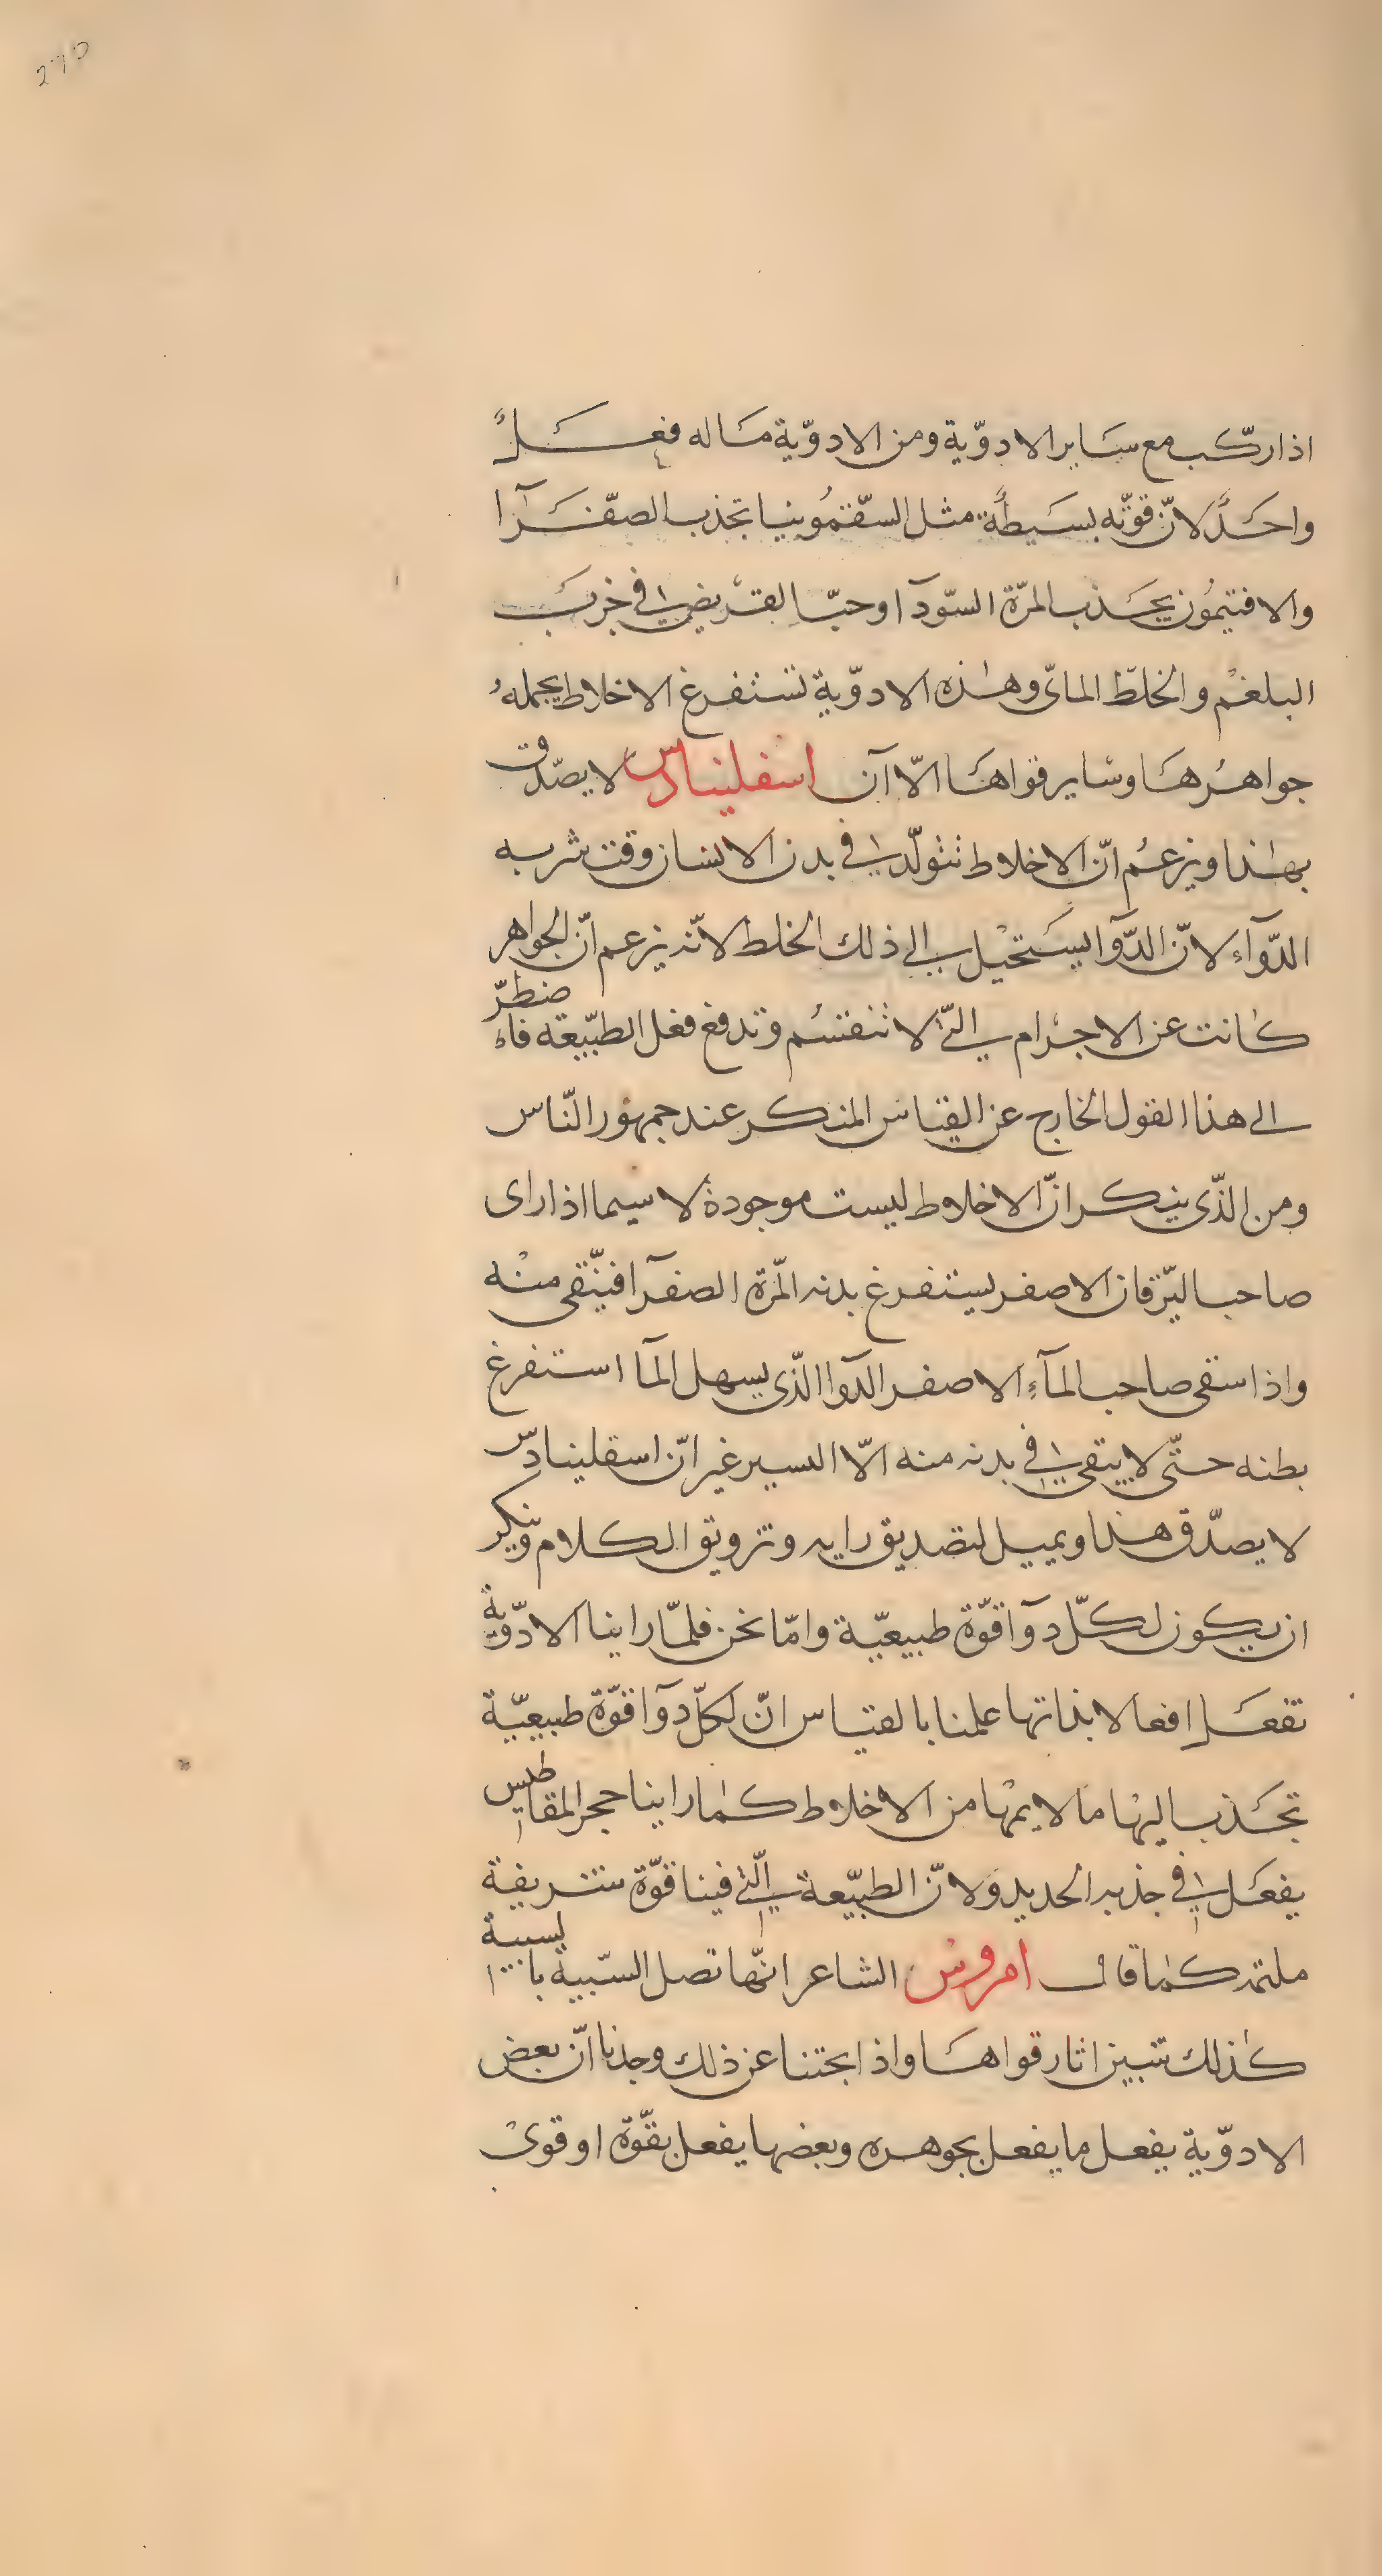 270
اذا ركّب مع سَاير الادوّية ومن الادوّية مَاله فعَلٌ
واحَدٌ لانّ قوتّه بسَيطةٌ مثل السّقمُونيا تجذب الصفّرَآا
والافتيمُون يجَذب المرّة السّودآ وحبّ القرْيض في خربَ
البلغمْ والخلطّ المائّ وهٰذه الادوّية تستفرغ الاخلاط بجملهُ
جواهرُهَا وسْاير قواهَا الّا آن اسفلينادس لا يصّدق
بهٰذا ويزعُم انّ الاخلاط تتولّد في بدن الانسان وقت شربه
الدّوآء لانّ الدّوآ يسَتحيْل الى ذلك الخلط لانّه يزعم انّ الجواهر
كانت عن الاجرْام التّى لا تنقسُم وتدفع فعل الطبّيعة فاضطرّ
الى هذا القول الخارج عن القياس المنكر عند جمهوْر النّاس
ومن الذّى ينكر انّ الاخلاط ليست موجودةْ لا سيما اذا راى
صاحب اليّرقان الاصفر يستفرغ بدنه المّرة الصفرآ فينّقى منْه
واذا سقى صاحب المآءِ الاصفر الدّوا الذّى يسهل المآ استفرغ
بطنه حتّى لا يبقى في بدنه منه الّا اليسير غير انّ اسقليناديّس
لا يصدّق هٰذا ويميل لتصديق رايه وتزويق الكلام وينكر
ان يكون لكلّ دوآ قوّة طبيعيّة وامّا نحن فلمّا راينا الادوّية
تفعَل افعالا بذاتها علمنا بالقياس انّ لكلّ دوآ قوّة طبيعيّة
تجَذب اليهْا مَا لايمهْا من الاخلاط كمٰا راينا حجر المقناطيس
يفعَل في جذبه الحديد وَلانّ الطبّيعة التّى فينا قوّة شريفة
ملتمه كمٰا قال امروسْ الشاعر انهّا تصل السّبية با لسبية
كذٰلك تتبين اثار قواهَا واذا بحثنا عن ذلك وجدنا انّ بعض
الادوّية يفعل ما يفعل بجوهره وبعضها يفعل بقّوة او قوىْ